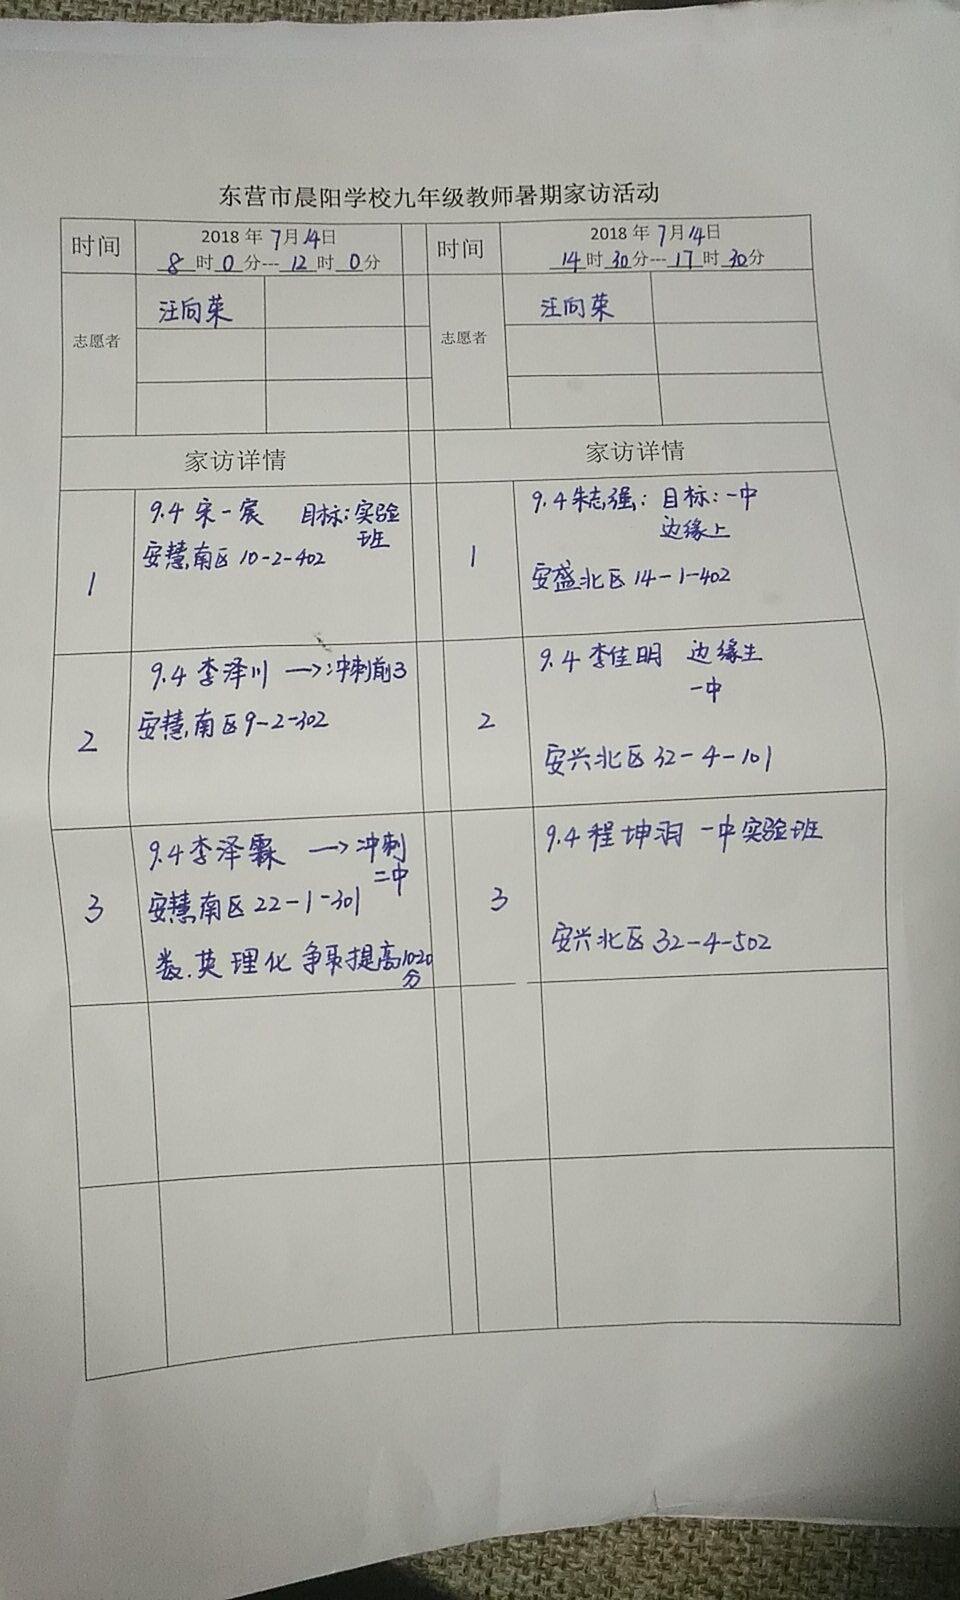 东营市晨阳学校九年级教师暑期家访活动
时间
2018 年 7月14日
8 时 0 分---12 时 0分
志愿者
汪向荣
家访详情
1
9.4 宋一宸 目标:实验
班
安慧南区 10-2-402
2
9.4 李泽川 →冲刺前3
安慧南区 9-2-302
3
9.4 李泽霖 →冲刺
二中
安慧南区 22-1-301
数.英 理化 争取提高10-20
分
时间
2018 年 7月14日
14时 30分---17时 30分
志愿者
汪向荣
家访详情
1
9.4 朱志强: 目标:一中
边缘上
安盛北区 14-1-402
2
9.4 李佳明 边缘生
一中
安兴北区 32-4-101
3
9.4 程坤润 一中实验班
安兴北区 32-4-502